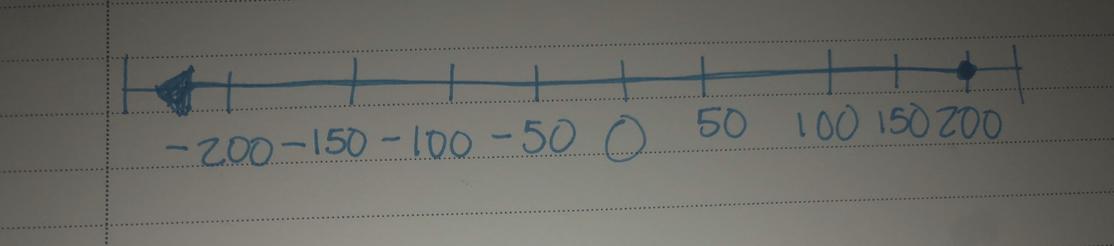 -200 -150 -100 -50 0 50 100 150 200